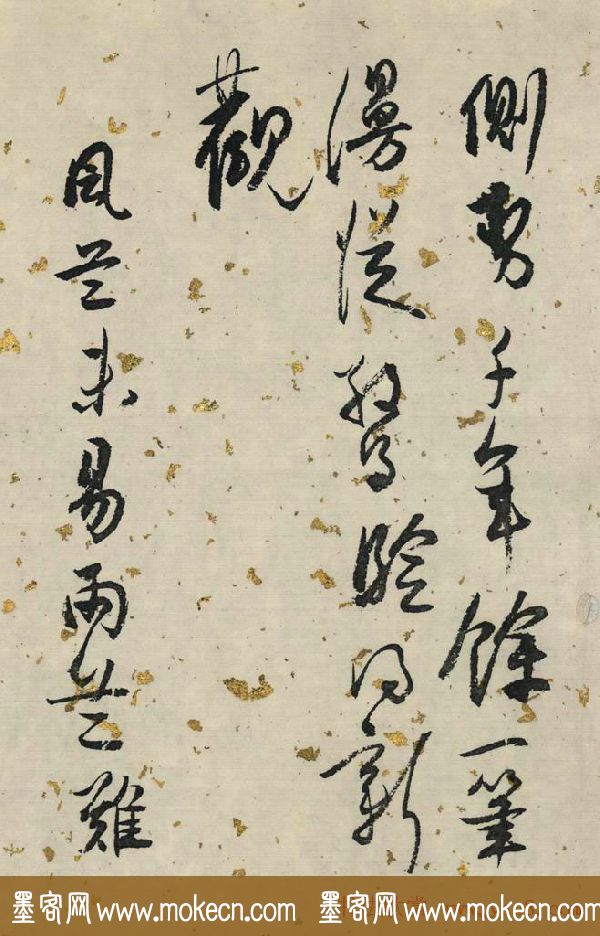 側勢千年餘一筆
漫從驚險得新
觀
風兰未易雨兰難
墨客网 www.mokecn.com 墨客网 www.mokecn.com